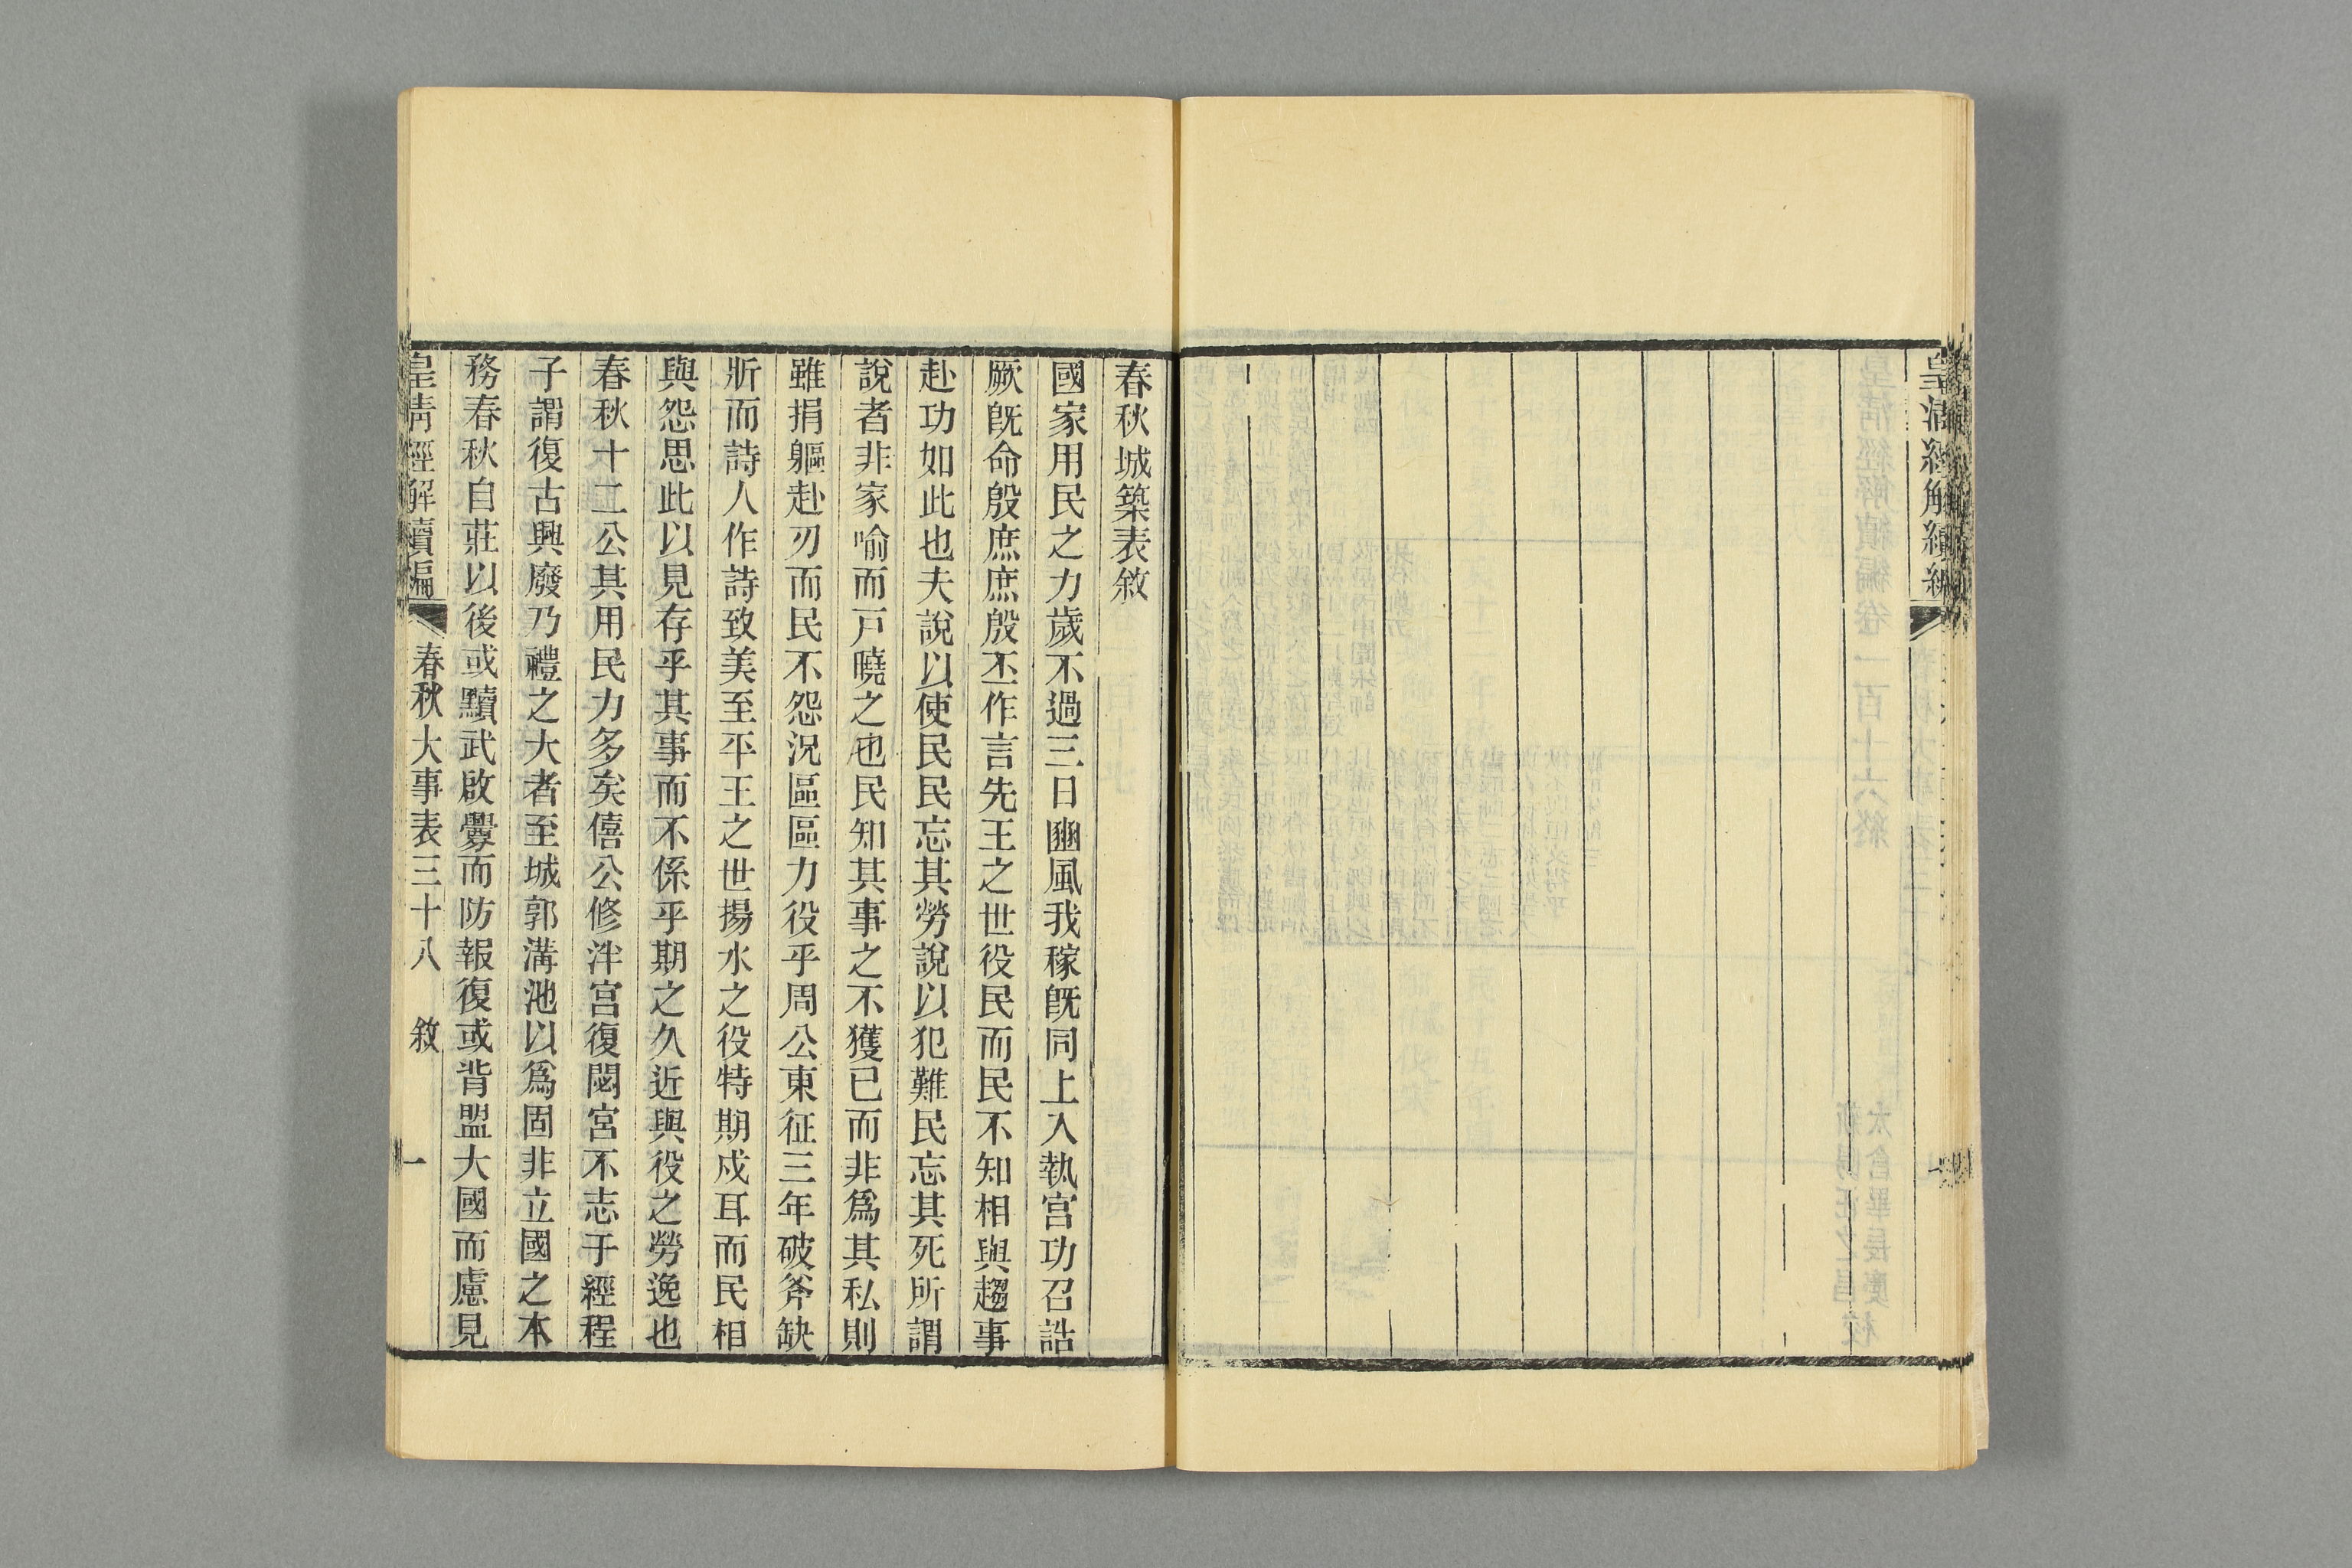 皇清經解續編
春秋城築表敘
國家用民之力歲不過三日豳風我稼旣同上入執宮功召誥
厥旣命殷庶庶殷丕作言先王之世役民而民不知相與趨事
赴功如此也夫說以使民民忘其勞說以犯難民忘其死所謂
說者非家喻而戸曉之也民知其事之不獲已而非爲其私則
雖捐軀赴刃而民不怨況區區力役乎周公東征三年破斧缺
斨而詩人作詩致美至平王之世揚水之役特期戍耳而民相
與怨思此以見存乎其事而不係乎期之久近與役之勞逸也
春秋十二公其用民力多矣僖公修泮宮復閟宮不志于經程
子謂復古興廢乃禮之大者至城郭溝池以爲固非立國之本
務春秋自莊以後或黷武啟釁而防報復或背盟大國而慮見
皇清經解續編 春秋大事表三十八 敘 一